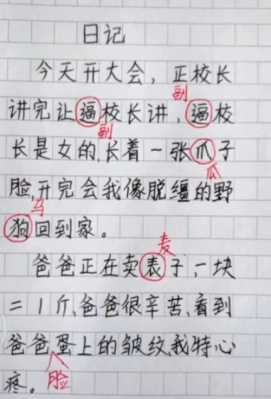 日记
今天开大会，正校长
讲完让逼校长讲，逼校
副
副
长是女的，长着一张爪子
瓜
脸，开完会我像脱缰的野
马
狗回到家。
麦
爸爸正在卖表子，一块
二1斤，爸爸很辛苦，看到
爸爸蛋上的皱纹，我特心
疼。脸